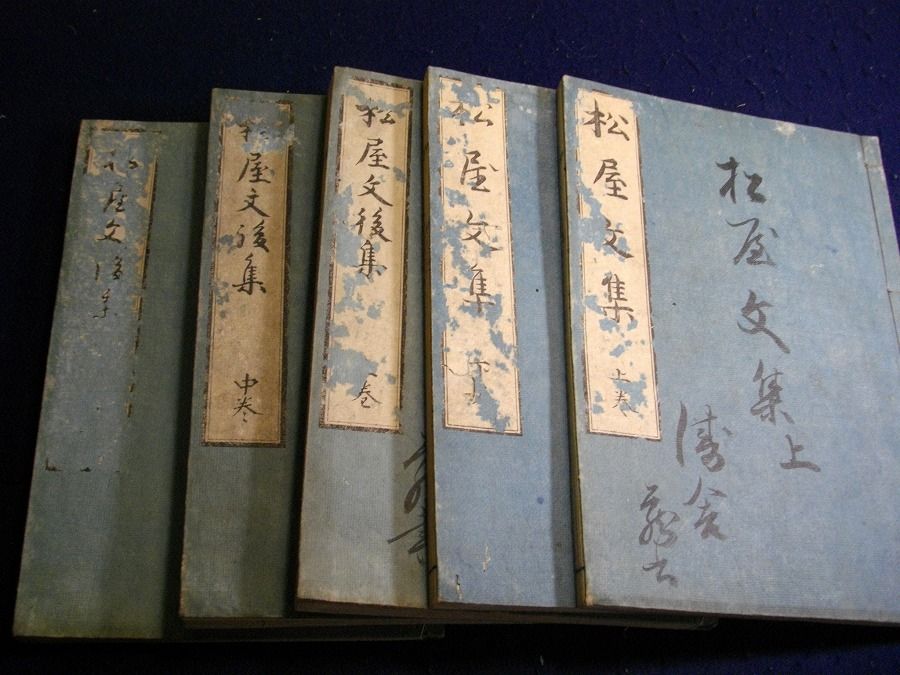 松屋文集上
松屋文集 上巻
屋文集
松屋文後集 巻
屋文後集 中巻
屋文後集